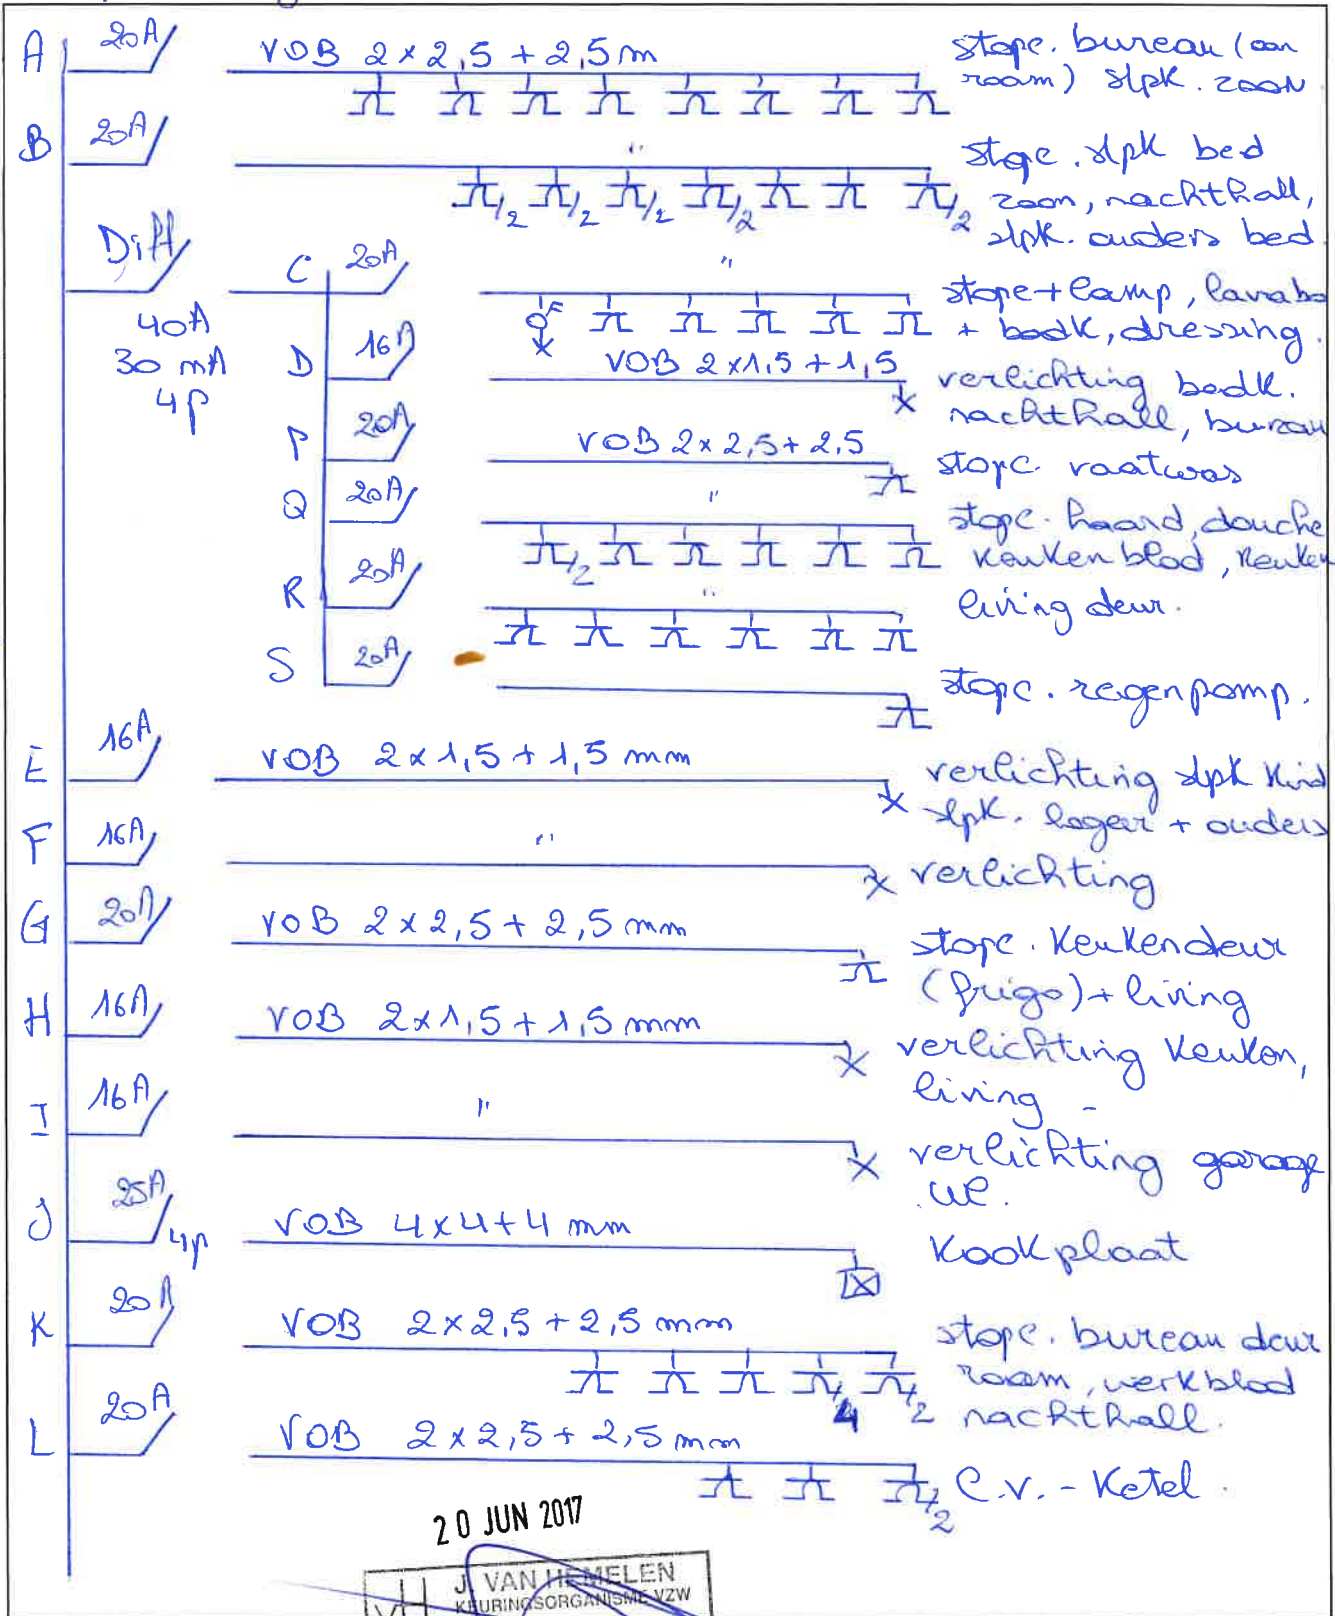 A 20A VOB 2 x 2,5 + 2,5 m stopc. bureau (aan
raam) slpk. zoon
B 20A " stopc. slpk bed
/2 /2 /2 /2 /2 zoon, nachthall,
slpk. ouders bed
Diff
40A
30 mA
4p
C 20A " stopc + lamp, lavabo
+ badk, dressing.
D 16A VOB 2 x 1,5 + 1,5 verlichting badk.
nachthall, bureau
P 20A VOB 2 x 2,5 + 2,5 stopc vaatwas
Q 20A " stopc. haard, douche
/2 keuken blad, keuken
R 20A " living deur.
S 20A stopc. regenpomp.
E 16A VOB 2 x 1,5 + 1,5 mm verlichting slpk kind
slpk. logee + ouders
F 16A " verlichting
G 20A VOB 2 x 2,5 + 2,5 mm stopc. keukendeur
(frigo) + living
H 16A VOB 2 x 1,5 + 1,5 mm verlichting keuken,
living
I 16A " verlichting garage
J 25A 4p VOB 4 x 4 + 4 mm kookplaat
K 20A VOB 2 x 2,5 + 2,5 mm stopc. bureau deur
raam, werkblad
/4 /2 nachthall.
L 20A VOB 2 x 2,5 + 2,5 mm
/2 C.V. - Ketel.
20 JUN 2017
VH J. VAN HEMELEN
KEURINGSORGANISME VZW